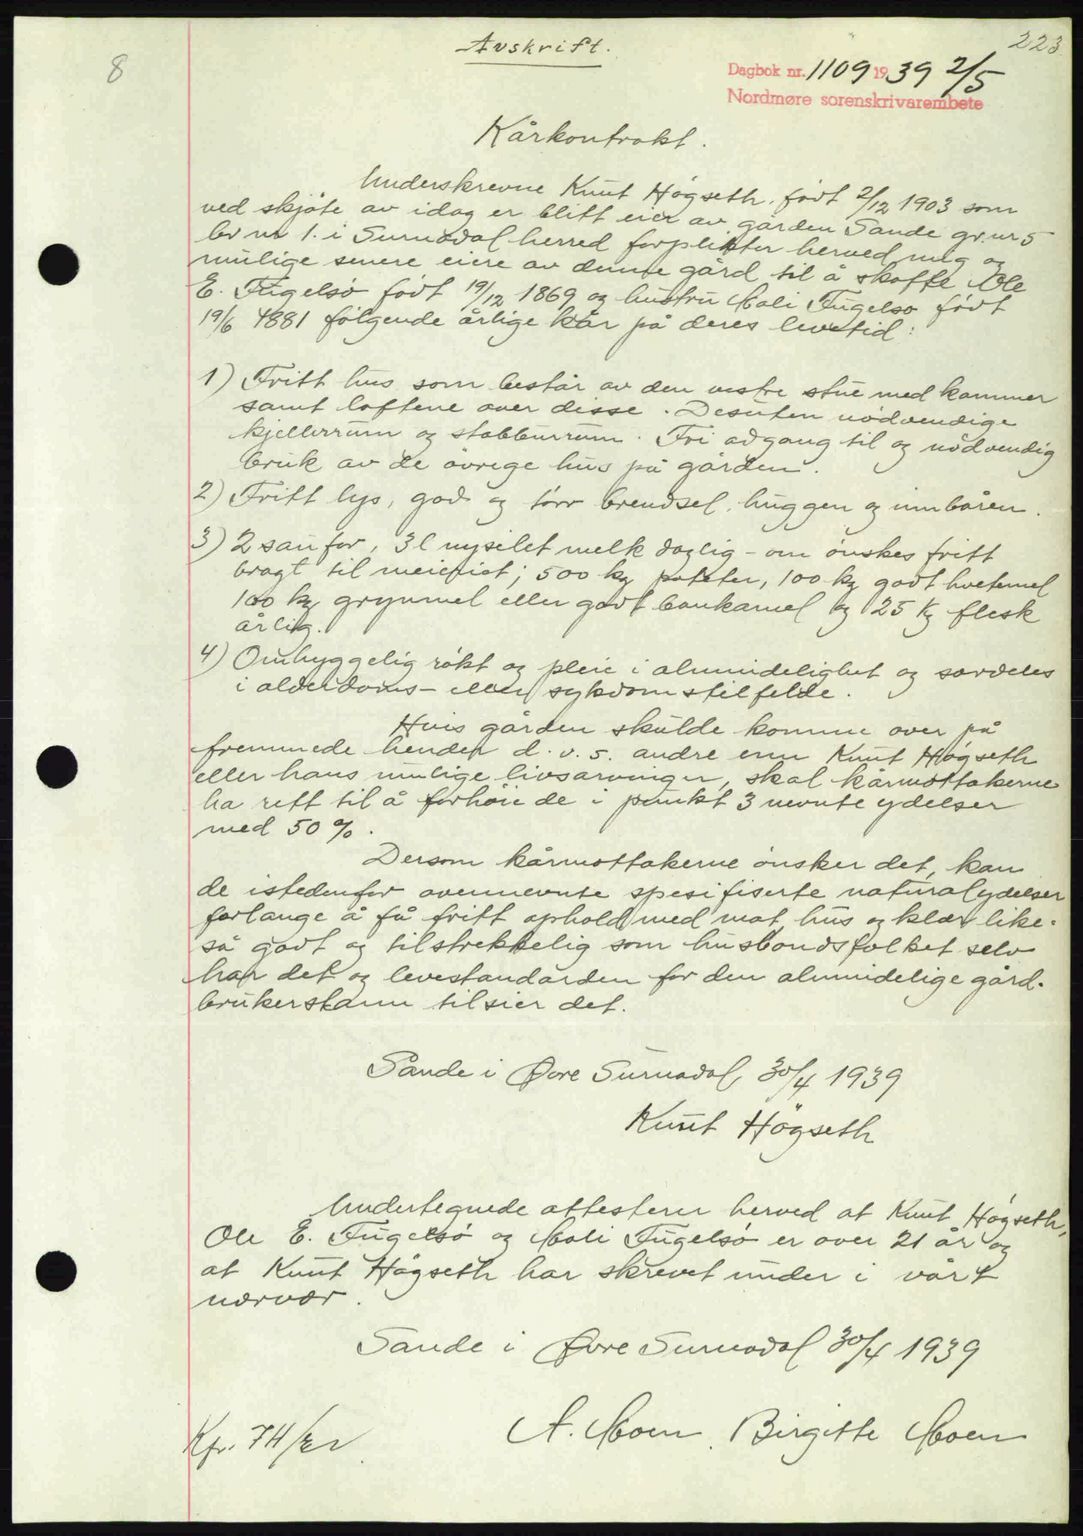 223
Avskrift.
8
Dagbok nr. 1109 1939 2/5
Nordmøre sorenskrivarembete
Kårkontrakt.
Underskrevne Knut Högseth, född 2/12 1903 som
ved skjöte av idag er blitt eier av gården Sande gr.nr 5
br nr 1. i Surnadal herred forplikter herved meg og
mulige senere eiere av denne gård til å skaffe Ole
E. Fugelsö födt 19/12 1869 og hustru Mali Fugelsö födt
19/6 1881 fölgende årlige kår på deres levetid:
1) Fritt hus som består av den vestre stue med kammer
samt loftene over disse. Desuten nödvendige
kjellerrum og stabbursrum. Fri adgang til og nödvendig
bruk av de övrige hus på gården.
2) Fritt lys, god og törr brendsel, huggen og innbåren.
3) 2 sauför, 3 l nysilet melk daglig - om önskes fritt
bragt til meieriet; 500 kg poteter, 100 kg godt hvetemel
100 kg grynmel eller godt bankamel og 25 kg flesk
årlig.
4) Omhyggelig rökt og pleie i almindelighet og særdeles
i alderdoms- eller sykdomstilfelde.
Hvis gården skulde komme over på
fremmede hender d. v. s. andre enn Knut Högseth
eller hans mulige livsarvinger, skal kårmottakerne
ha rett til å forhöie de i punkt 3 nevnte ydelser
med 50 %.
Dersom kårmottakerne önsker det, kan
de istedenfor ovennevnte spesifiserte naturalydelser
forlange å få fritt ophold med mat, hus og klær like-
så godt og tilstrekkelig som husbondsfolket selv
har det og levestandarden for den almindelige gård-
brukerstann tilsier det.
Sande i Øvre Surnadal, 30/4 1939
Knut Högseth
Undertegnede attesterer herved at Knut Högseth,
Ole E. Fugelsö og Mali Fugelsö er over 21 år og
at Knut Högseth har skrevet under i vårt
nærvær.
Sande i Øvre Surnadal 30/4 1939
A. Moen. Birgitte Moen
Kfr. 74/